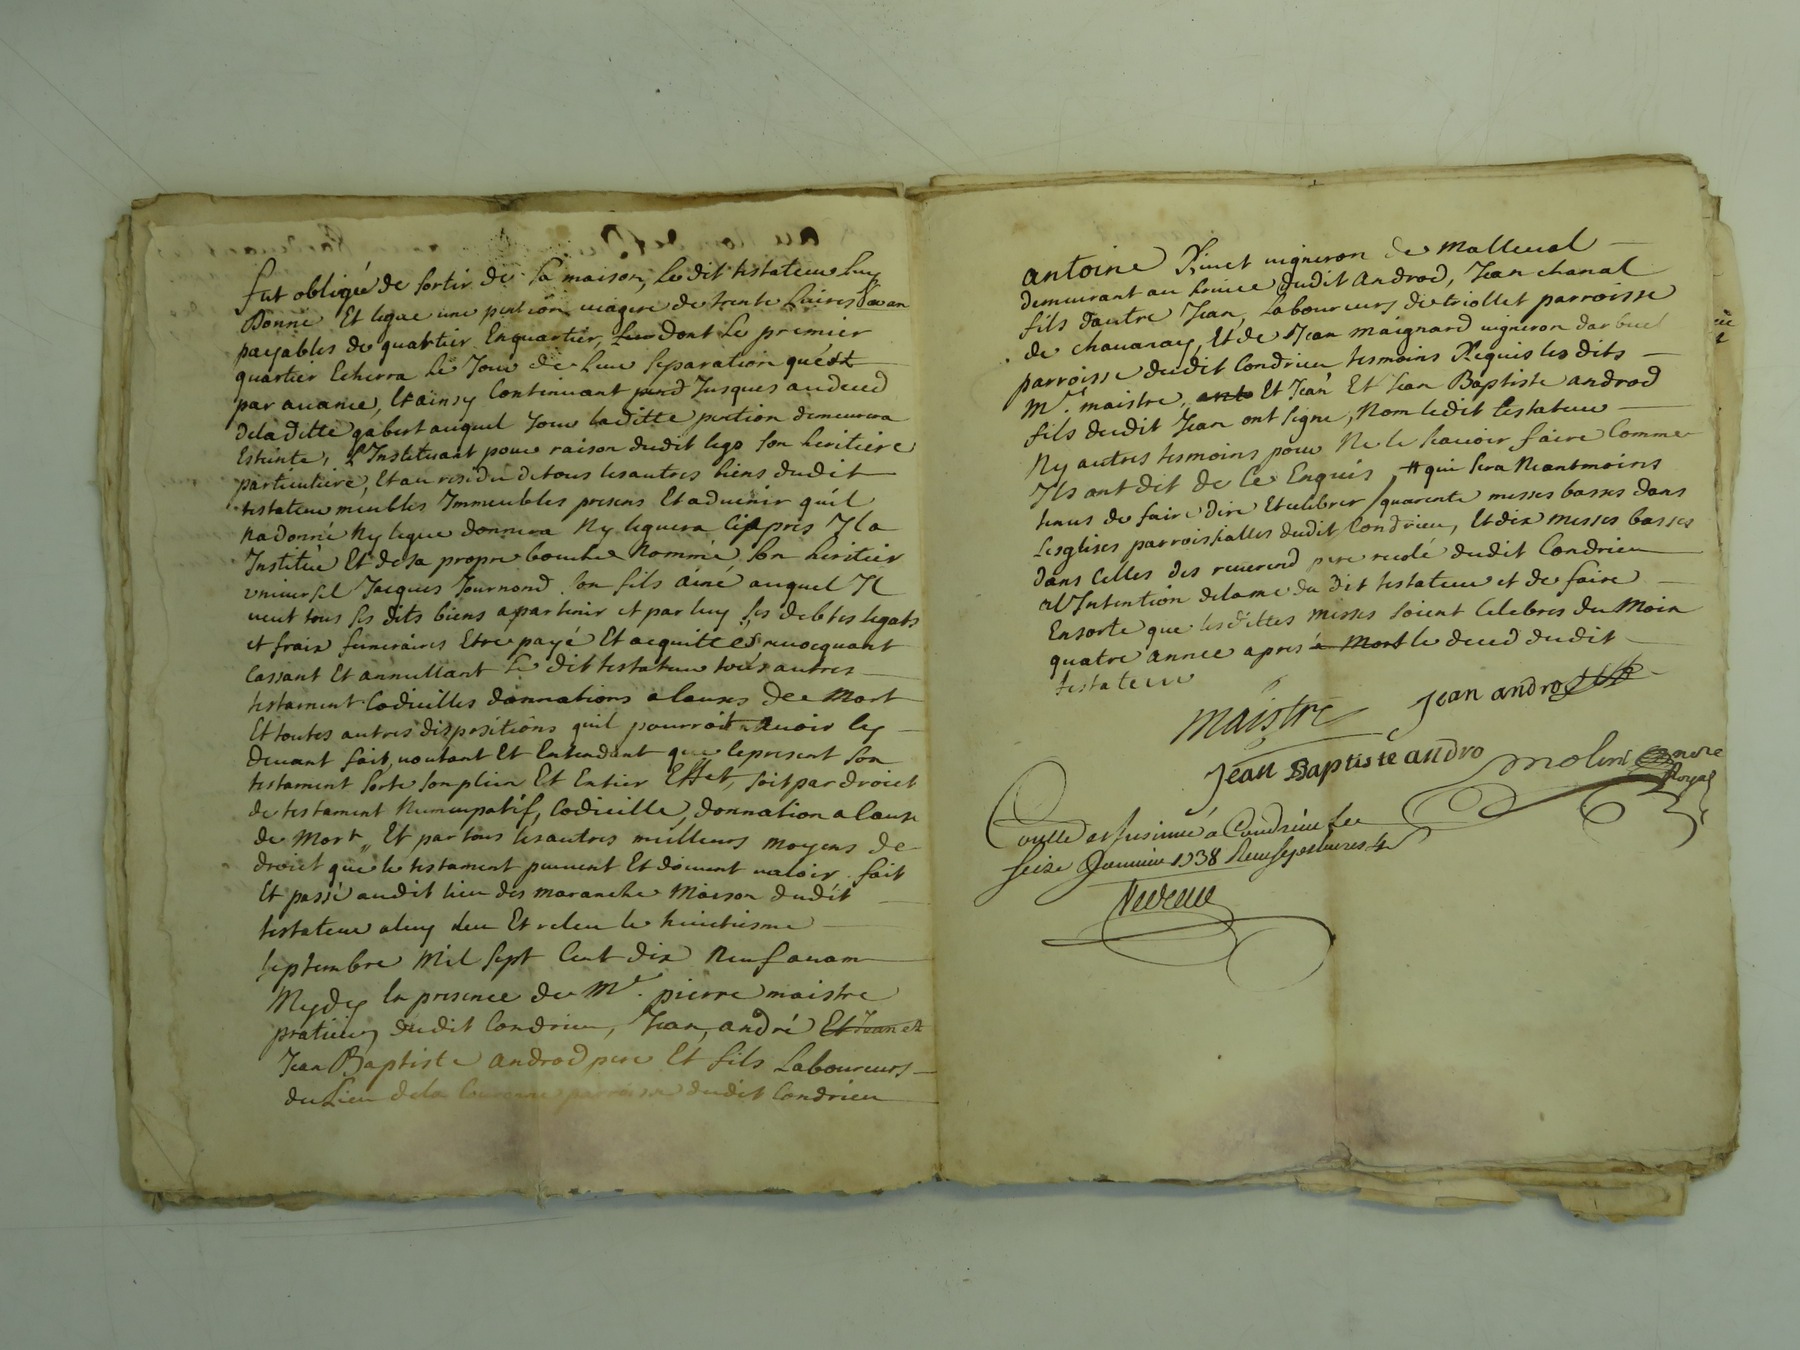 fut obligée de sortir de sa maison, le dit testateur luy
Donne Et legue une pention viagere de trente Livres par an
payables de quartier En quartier, dont Le premier
quartier Echerra Le Jour de Leur separation quest
par avance, Et ainsy Continuant Jusques au deced
dela ditte gabert auquel Jour laditte pention demeurera
Esteinte, L'Instituant pour raison dudit lega son heritiere
particuliere, Et au residu de tous les autres biens dudit
testateur meubles Immeubles presens Et advenir quil
na donné Ny legue donnera Ny leguera Cy apres Il a
Institué Et de sa propre bouche Nommé son heritier
vniversel Jacques Journond son fils ainé auquel Il
veut tous ses dits biens apartenir et par luy ses debtes legats
et fraix funeraires Etre payé Et acquittés, revocquant
Cassant Et annullant Le dit testateur tous autres
testament Codicilles donnations a Cause De Mort
Et toutes autres dispositions quil pourroit avoir Cy
devant fait, voulant Et Entendant que le present son
testament sorte son plein Et Entier Effet, soit par droict
de testament Nuncupatif, Codicille, donnation a Cause
de Mort, Et par tous les autres meilleurs moyens de
droict que le testament peuvent Et doivent valoir. fait
Et passé audit lieu des maranche Maison dudit
testateur a luy leu Et releu le huictiesme
septembre Mil sept Cent dix Neuf avam
Mydy En presence de Mr. pierre maistre
praticien dudit Condrieu, Jean, andré Et Jean et
Jean Baptiste androd pere Et fils Laboureurs
du Lieu dela parroisse dudit Condrieu
antoine vigneron de Malleval
demeurant au service dudit androd, Jean chanal
fils d'autre Jean, Laboureurs de triollet parroisse
de chavanay, Et de Jean maignard vigneron darbuel
parroisse dudit Condrieu tesmoins Requis les dits
Mr. maistre, Et Jean Et Jean Baptiste androd
fils dudit Jean ont signe, Nom ledit testateur
Ny autres tesmoins pour Ne le scavoir faire Comme
Ils ont dit de Ce Enquis # qui sera Neantmoins
tenus de faire dire Et celebrer quarente messes basses dans
Lesglises parroissialles dudit Condrieu, Et dix messes basses
dans Celles des reverend pere recolé dudit Condrieu
a l'Intention delame du dit testateur et de faire
Ensorte que les dittes messes soient Celebres du Moin
quatre annee apres a Mort le deced dudit
testateur
Maistre Jean androd
Jean Baptiste andro molin Royal
Conllé et Insinué a Condrieu Le
seize Janvier 1738